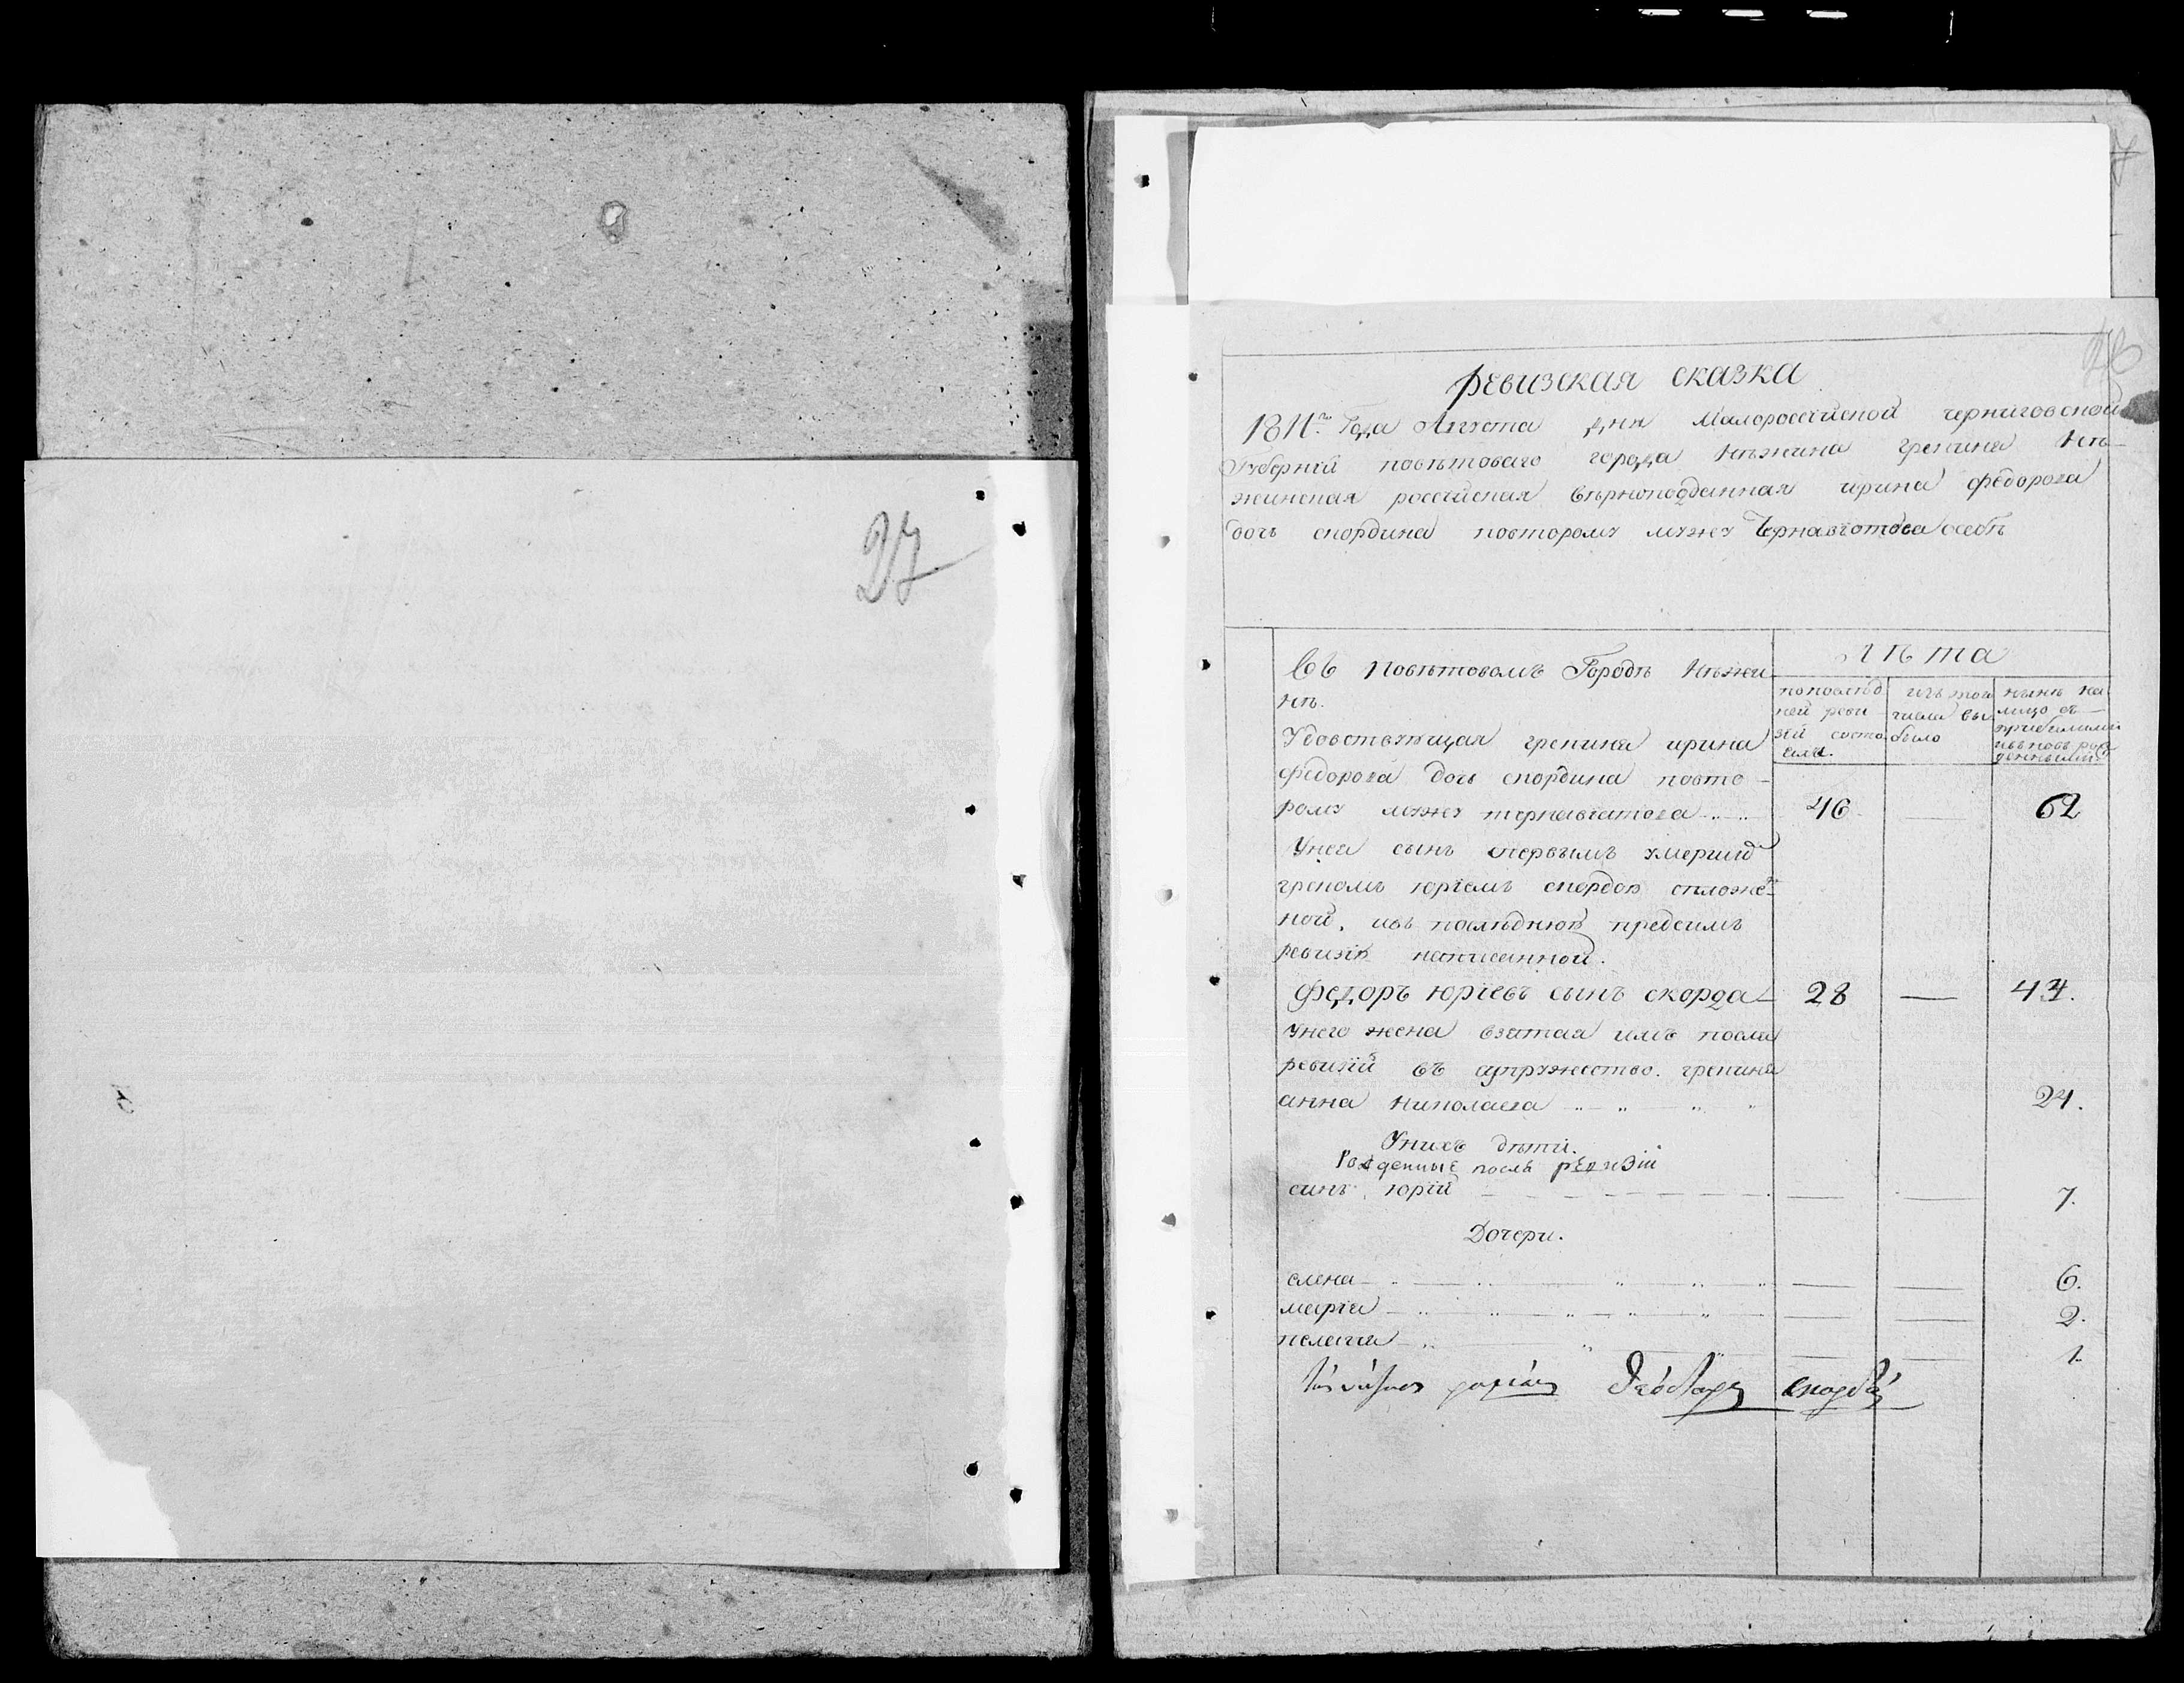 27
28
Ревизская сказка
1811го Года Августа дня Малороссійской черниговской
Губерній повѣтоваго города Нѣжина грекиня Нѣ-
жинская россійская вѣрноподданная ирина федорова
дочь скордина повторому мужу Чернавіотова осебѣ
Въ Повѣтовомъ Городѣ Нѣжи
нѣ.
Лѣта
попослѣд
ней реви
зіи состо
яла.
изъ того
числа вы
было
нынѣ на
лицо съ
прибылыми
ивновь рож
денными
Удовствующая грекиня ирина
федорова дочь скордина повто-
рому мужу тернавіатова 46 — 62
Унея сынъ спервымъ умершимъ
грекомъ юріемъ скордою спложе-
ной, ивъ послѣднюю предсимъ
ревизію написанной.
Федоръ юріевъ сынъ скорда 28 — 44.
Унего жена взятая имъ после
ревизіи въ супружество. грекиня
анна николаева 24.
Унихъ дѣти.
Рожденные послѣ ревизіи
синъ юрій — — 7.
Дочери.
елена — — 6.
марія — — 2.
пелагия — — 1.